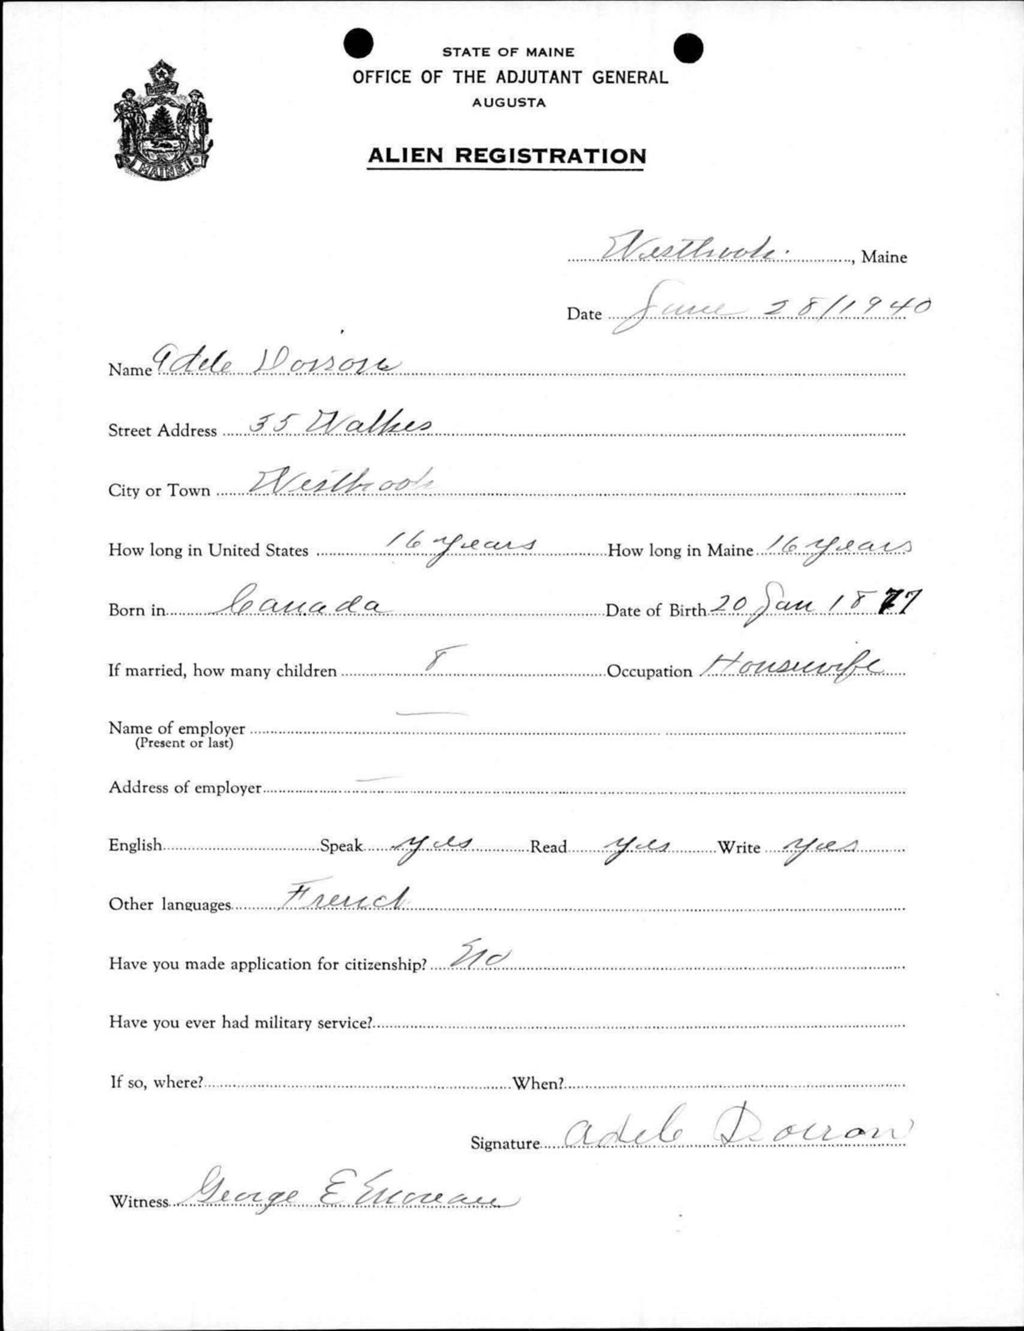 STATE OF MAINE
OFFICE OF THE ADJUTANT GENERAL
AUGUSTA
ALIEN REGISTRATION
MAINE
Westbrook, Maine
Date June 28/1940
Name Adele Doiron
Street Address 35 Walker
City or Town Westbrook
How long in United States 16 years How long in Maine 16 years
Born in Canada Date of Birth 20 Jan 1877
If married, how many children 8 Occupation Housewife
Name of employer —
(Present or last)
Address of employer —
English Speak yes Read yes Write yes
Other languages French
Have you made application for citizenship? No
Have you ever had military service?
If so, where? When?
Signature Adele Doiron
Witness George E Moreau